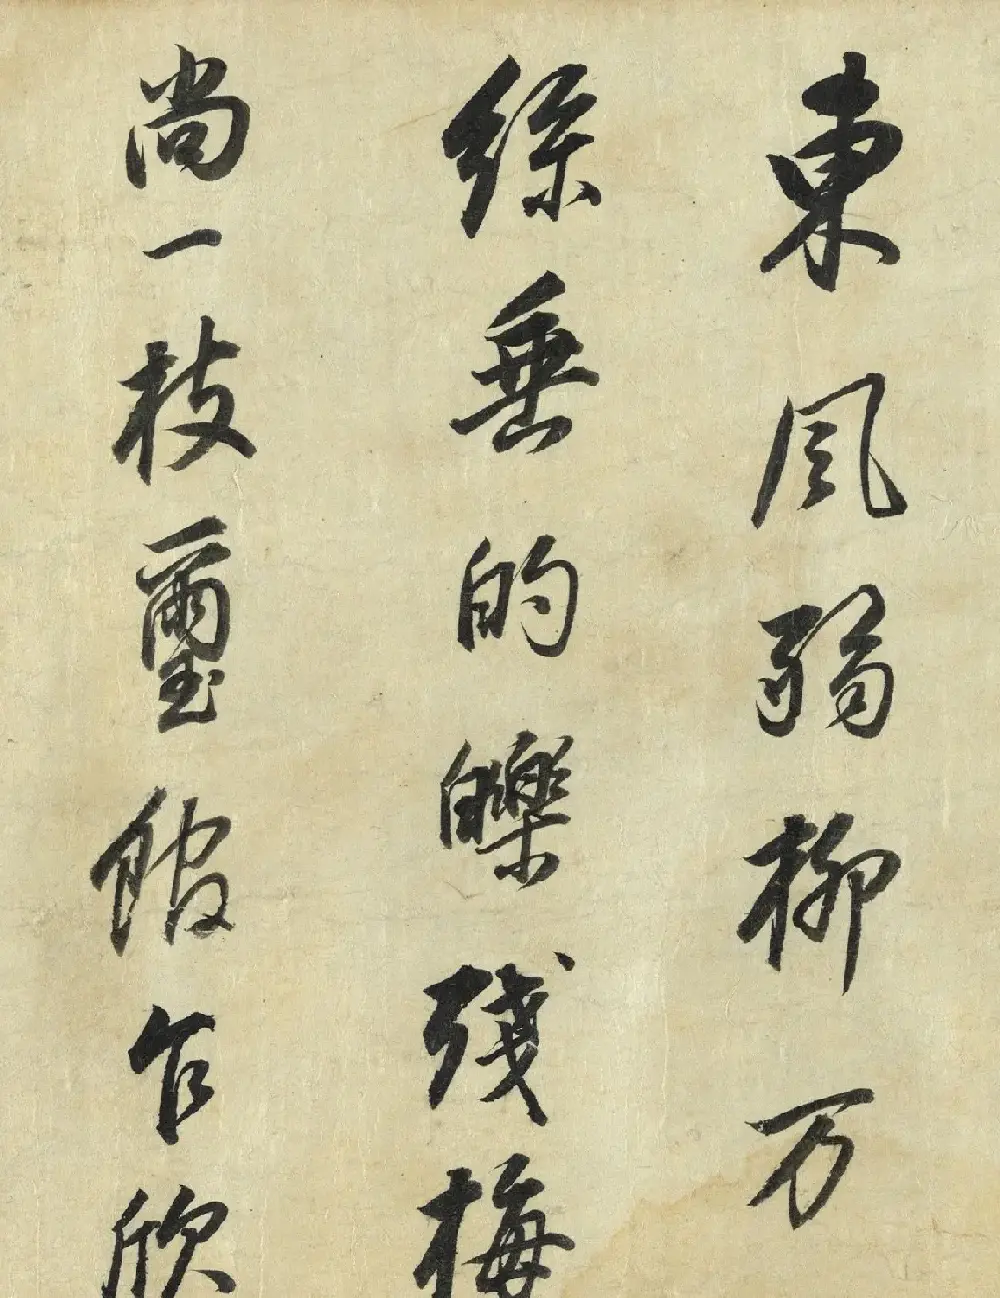 東風弱柳万
絲垂的皪残梅
尚一枝璽館乍欣